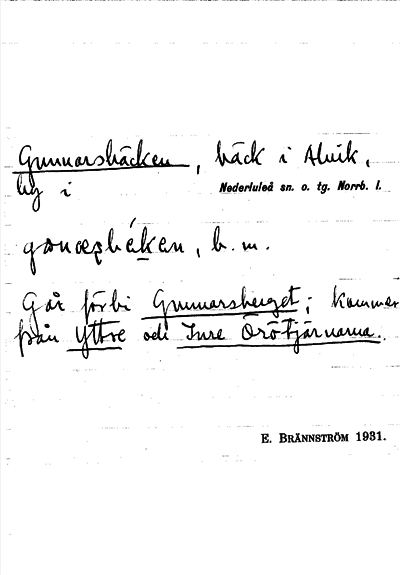 Gunnarsbäcken, bäck i Alvik,
by i Nederluleå sn. o. tg. Norrb. l.
b. m.
Går förbi Gunnarsberget; kommer
från Yttre och Inre Orötjärnarna.
E. BRÄNNSTRÖM 1931.